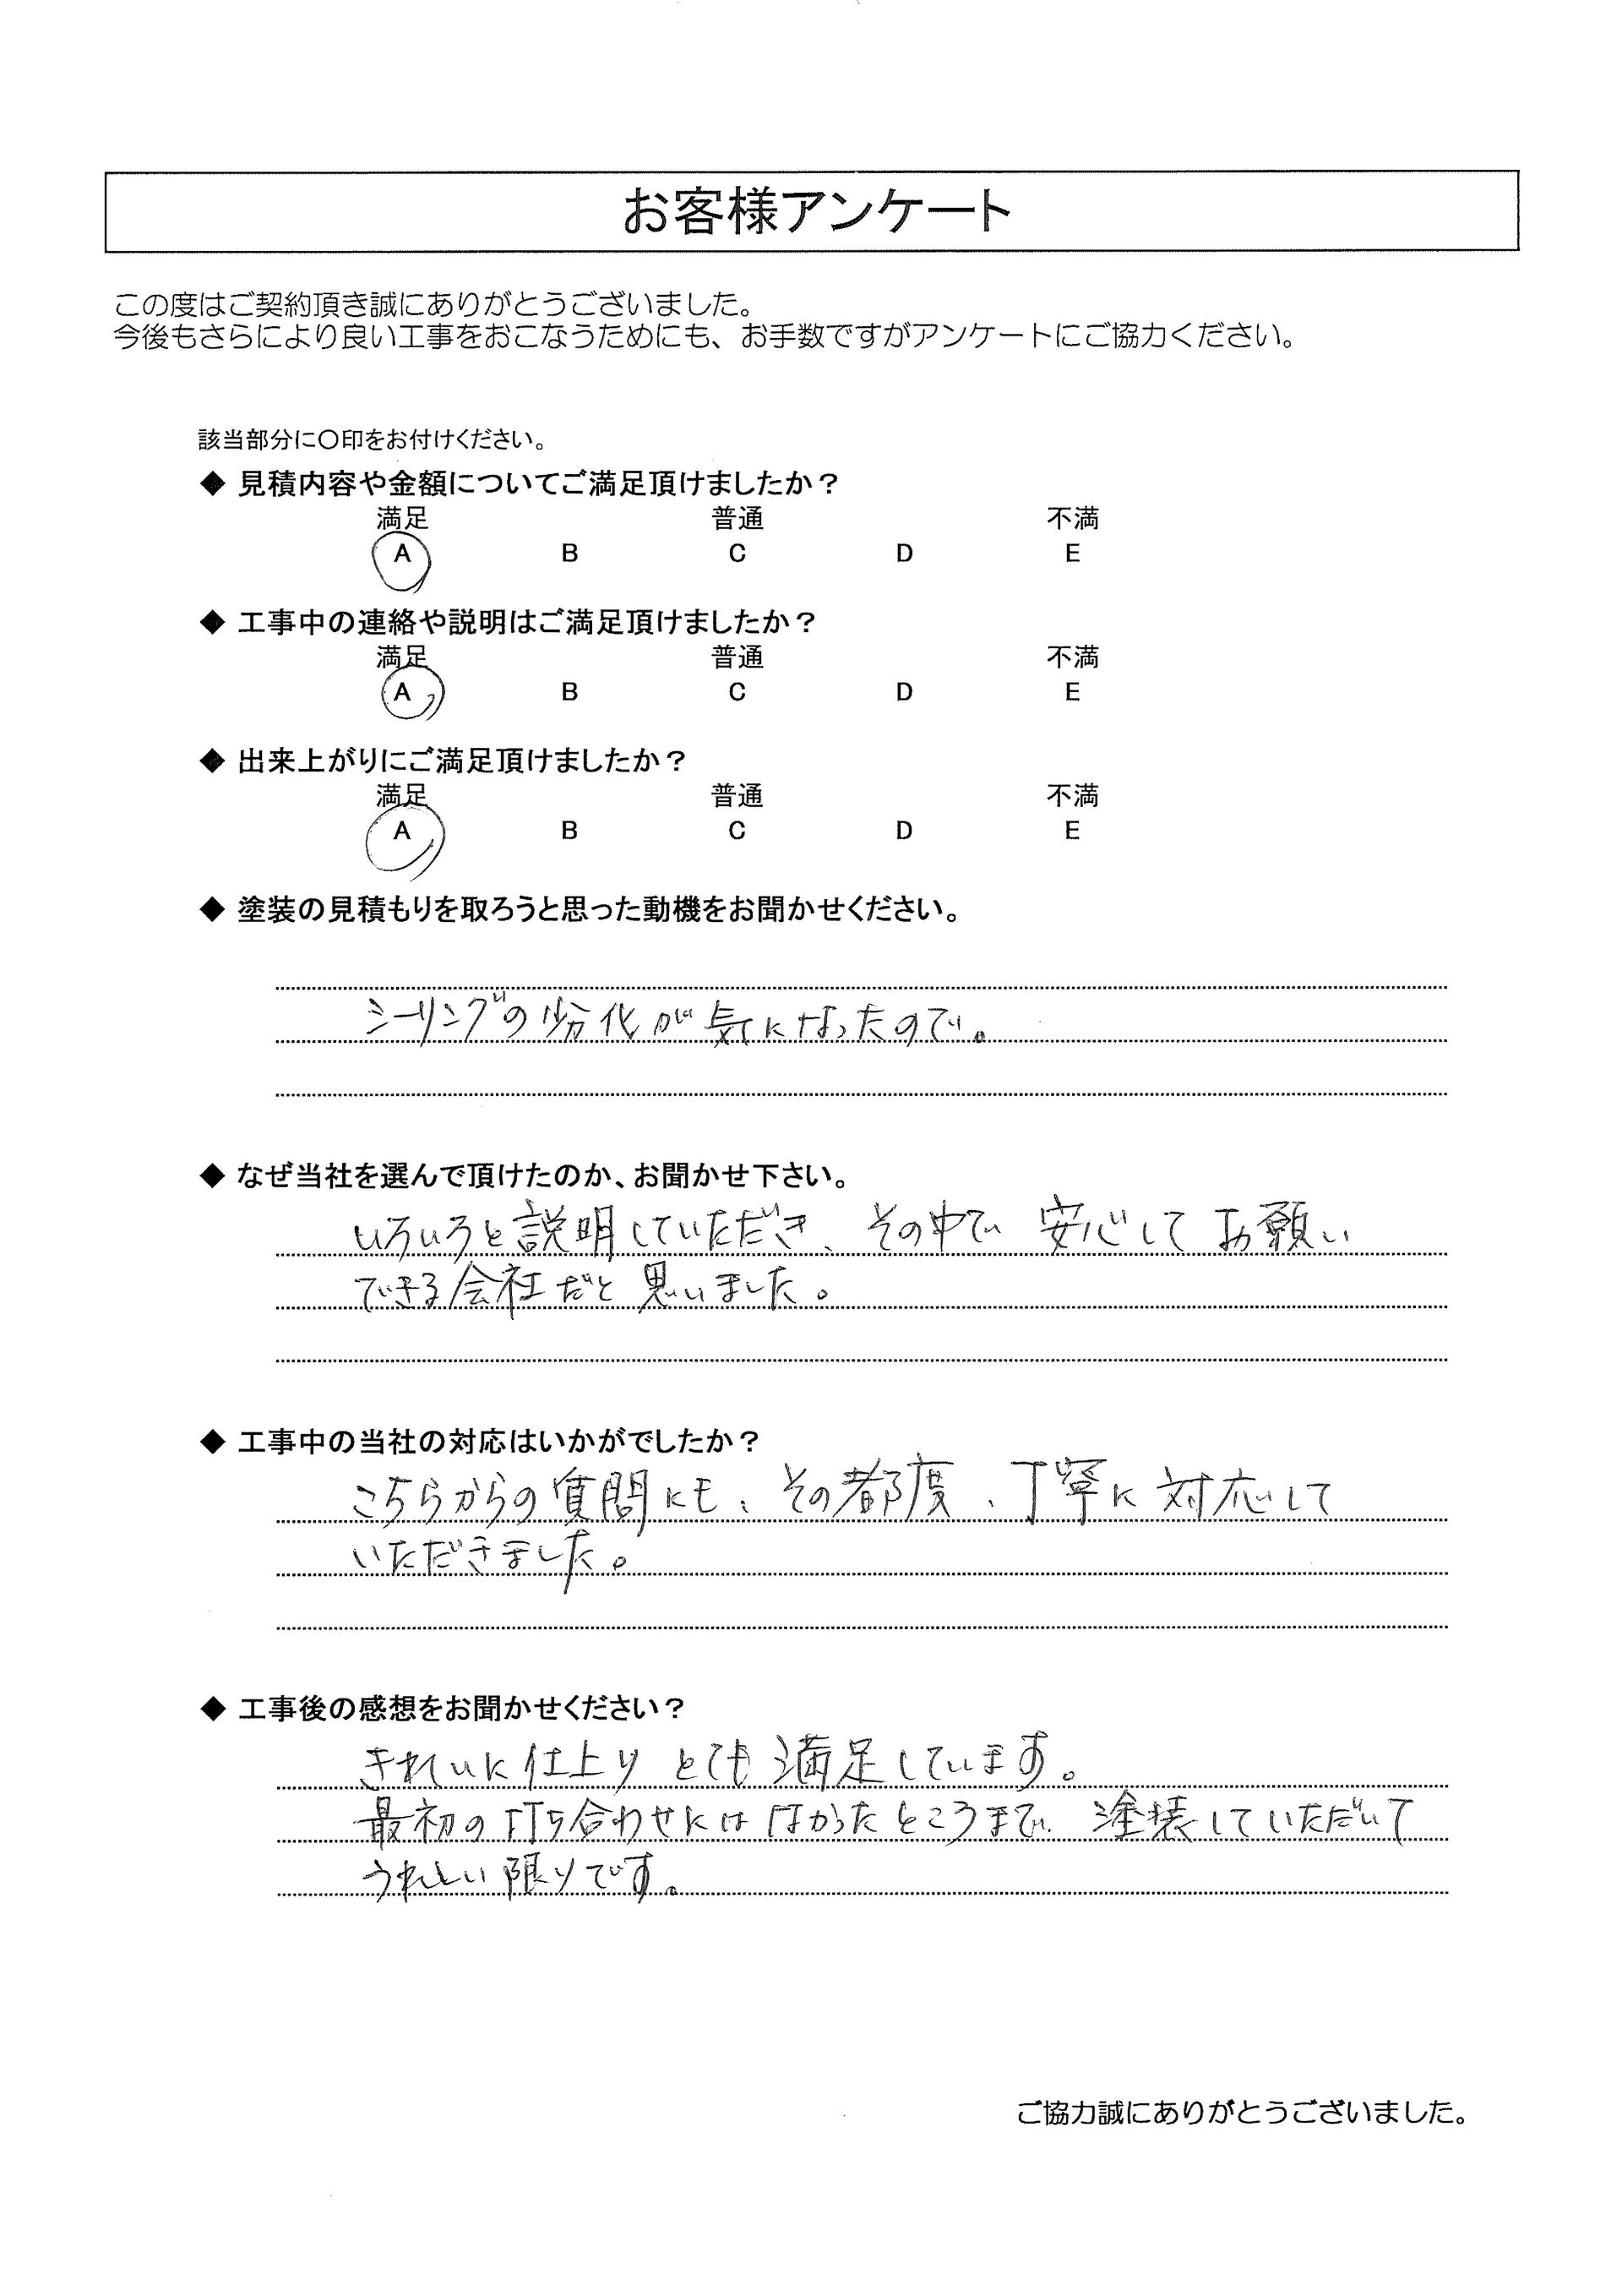 お客様アンケート
この度はご契約頂き誠にありがとうございました。
今後もさらにより良い工事をおこなうためにも、お手数ですがアンケートにご協力ください。
該当部分に〇印をお付けください。
◆ 見積内容や金額についてご満足頂けましたか？
満足 普通 不満
A B C D E
◆ 工事中の連絡や説明はご満足頂けましたか？
満足 普通 不満
A B C D E
◆ 出来上がりにご満足頂けましたか？
満足 普通 不満
A B C D E
◆ 塗装の見積もりを取ろうと思った動機をお聞かせください。
シーリングの劣化が気になったので。
◆ なぜ当社を選んで頂けたのか、お聞かせ下さい。
いろいろと説明していただき、その中で 安心して お願い
できる会社だと思いました。
◆ 工事中の当社の対応はいかがでしたか？
こちらからの質問にも、その都度、丁寧に対応して
いただきました。
◆ 工事後の感想をお聞かせください？
きれいに仕上り とても満足しています。
最初の打ち合わせにはなかったところまで 塗装していただいて
うれしい限りです。
ご協力誠にありがとうございました。